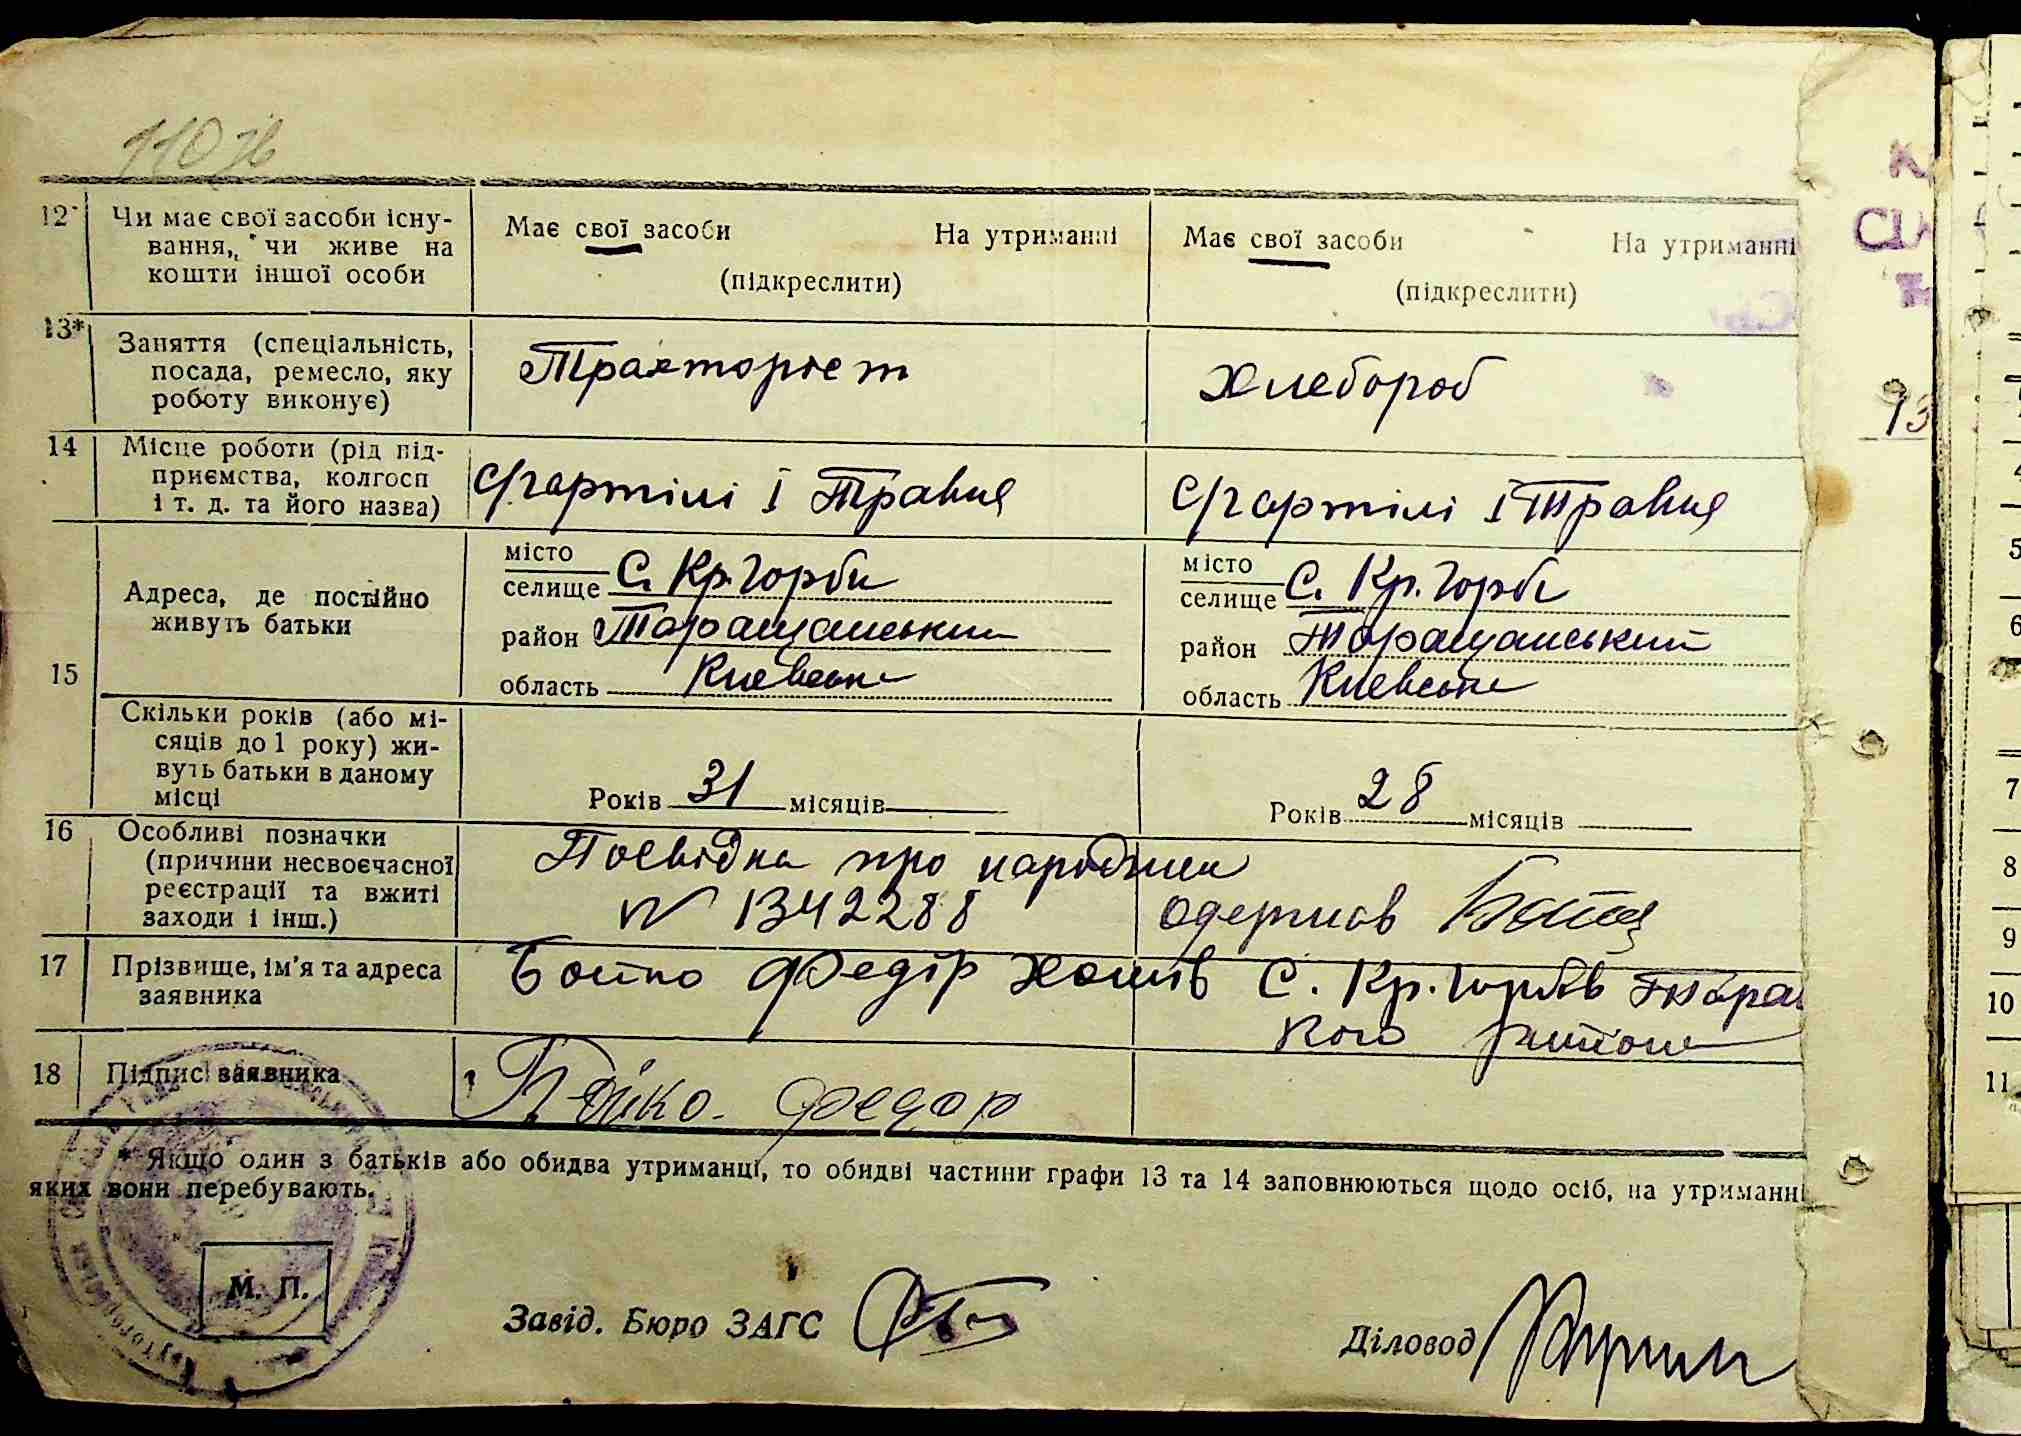 110 зв
12 Чи має свої засоби існу-
вання, чи живе на
кошти іншої особи
Має свої засоби На утриманні
(підкреслити)
Має свої засоби На утриманні
(підкреслити)
13* Заняття (спеціальність,
посада, ремесло, яку
роботу виконує)
Тракторіст
Хлебороб
14 Місце роботи (рід під-
приємства, колгосп
і т. д. та його назва)
С/г артілі І Травня
С/г артілі І Травня
15
Адреса, де постійно
живуть батьки
місто
селище С. Кр. Горби
район Таращанський
область Киевська
місто
селище С. Кр. Горби
район Таращанський
область Киевська
Скільки років (або мі-
сяців до 1 року) жи-
вуть батьки в даному
місці
Років 31 місяців
Років 28 місяців
16 Особливі позначки
(причини несвоєчасної
реєстрації та вжиті
заходи і інш.)
Посвідка про народження
№ 1342288 одержав
17 Прізвище, ім'я та адреса
заявника
Бойко Федір С. Кр. Горбів Тара
кого району
18 Підпис заявника
Бойко Федор
* Якщо один з батьків або обидва утриманці, то обидві частини графи 13 та 14 заповнюються щодо осіб, на утриманні
яких вони перебувають.
М. П.
Завід. Бюро ЗАГС
Діловод
13
5
6
7
8
9
10
11